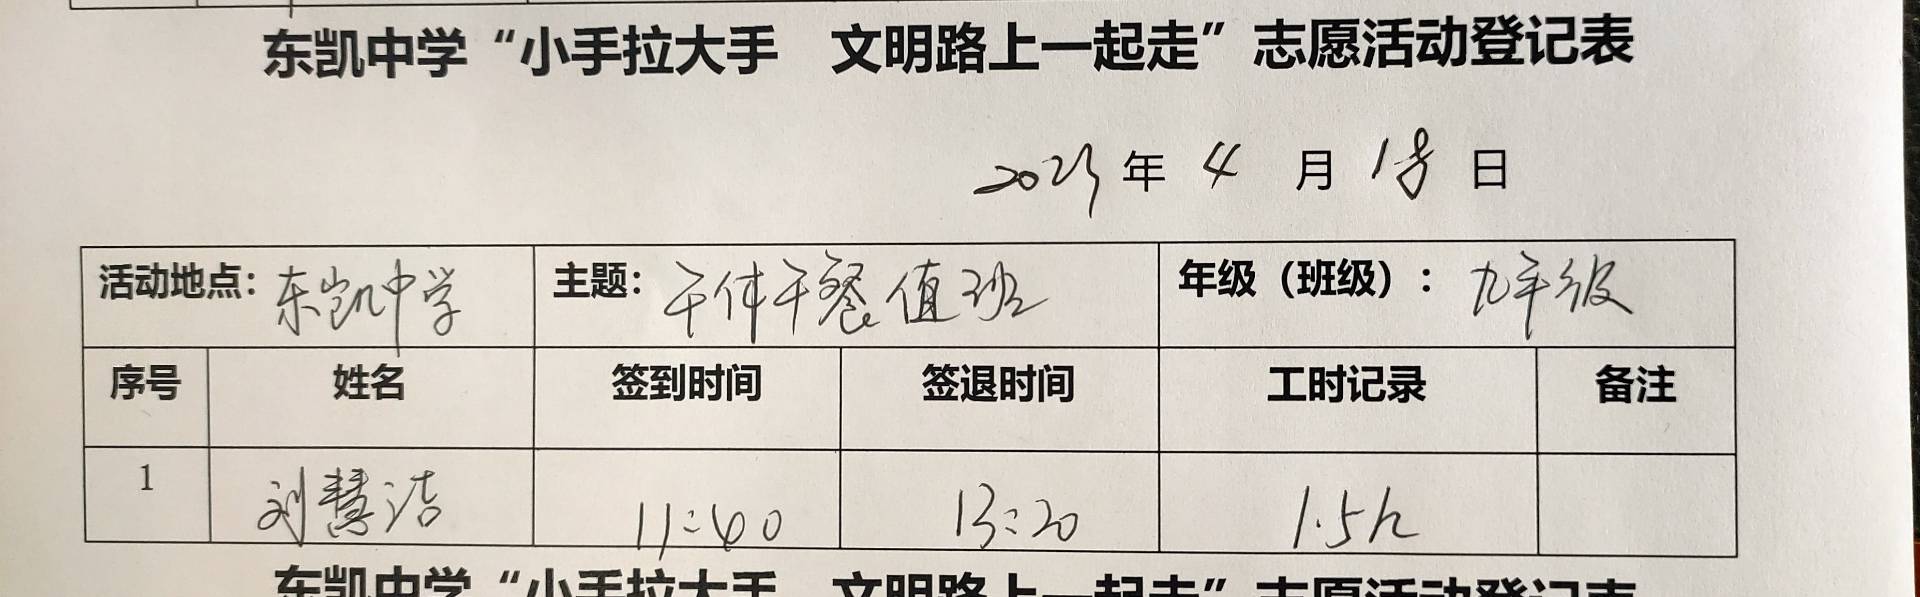 东凯中学“小手拉大手 文明路上一起走”志愿活动登记表
2023年 4 月 18 日
活动地点：东凯中学 主题：午休午餐值班 年级（班级）：九年级
序号 姓名 签到时间 签退时间 工时记录 备注
1 刘慧洁 11:40 13:20 1.5h
东凯中学“小手拉大手 文明路上一起走”志愿活动登记表